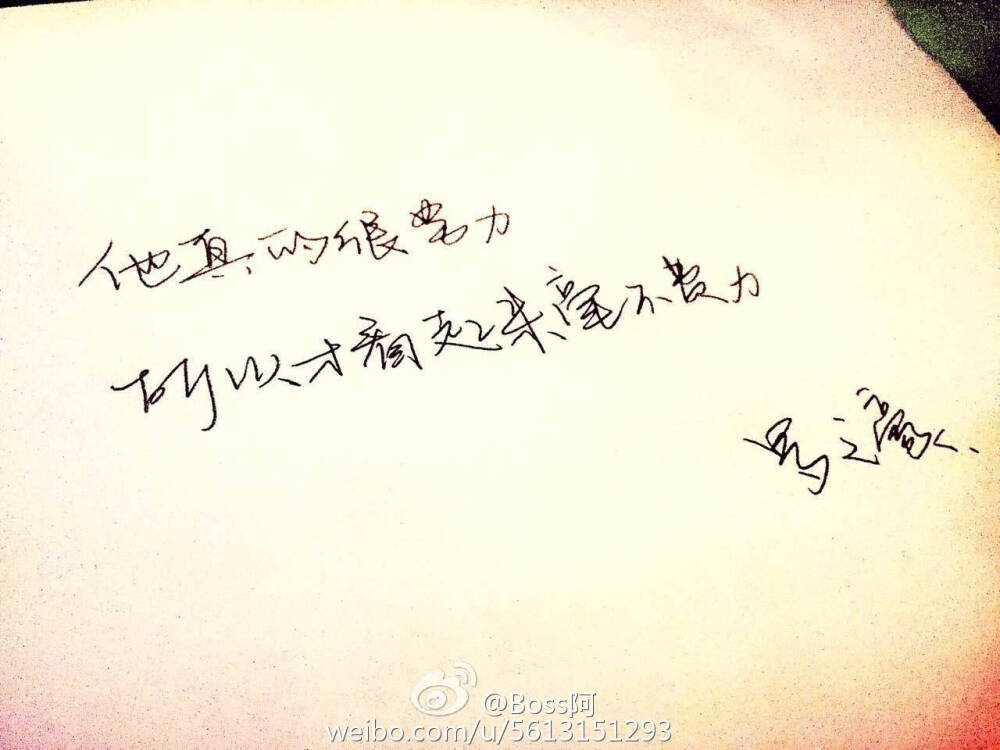 他真的很努力
所以才看起来毫不费力
马之
@Boss阿
weibo.com/u/5613151293